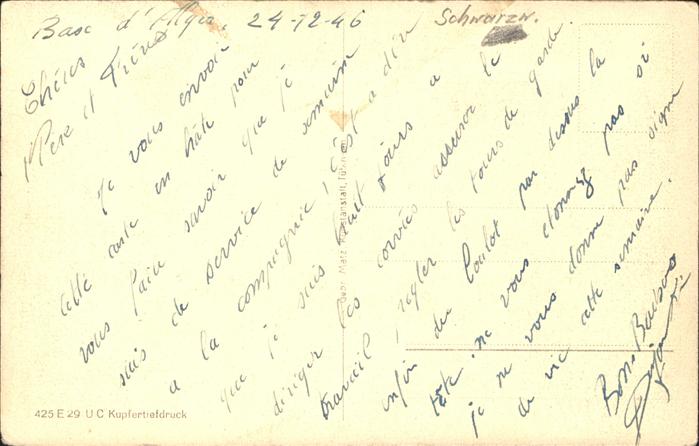 Base d'Alger. 24-12-46
Schwarzw.
Chères
Mère et Frères
Je vous envoir
cette carte en hâte pour
vous faire savoir que je
suis de service de semaine
a la compagnie, c'est a dire
que je suis huit jours a
diriger les corvées assurer le
travail, régler les tours de garde.
enfin du boulot par dessus la
tête. ne vous étonnez pas si
je ne vous donne pas signe
de vie cette semaine.
Bons Baisers
Gebr. Metz, Kunstanstalt, Tübingen
425 E 29 U C Kupfertiefdruck